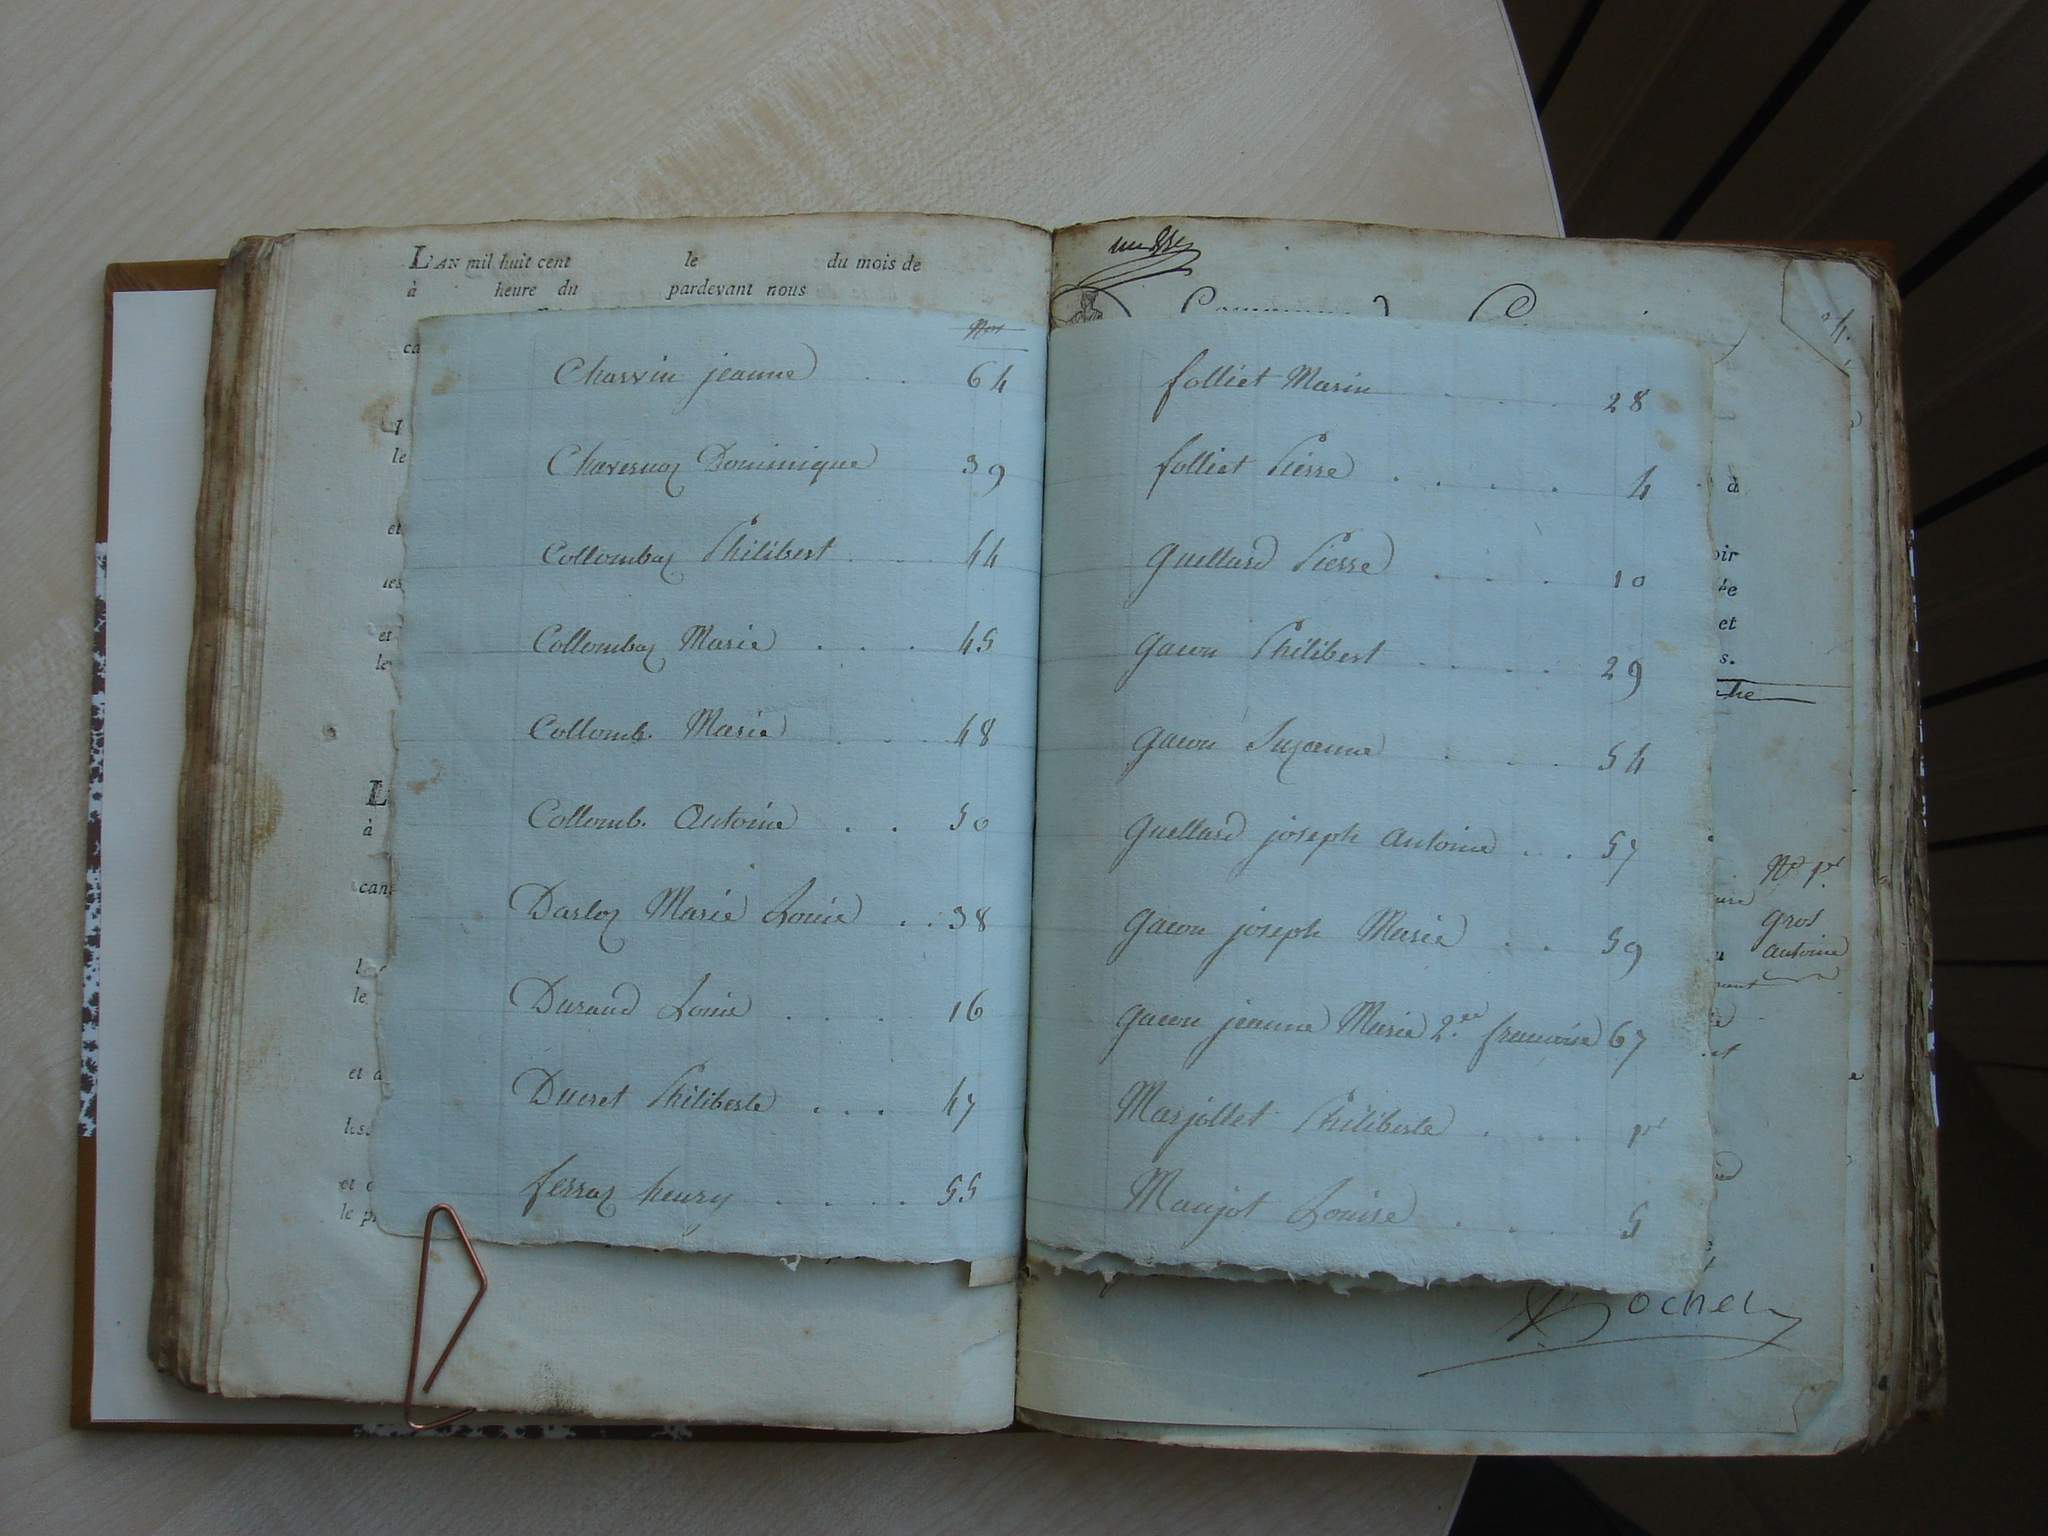 L'AN mil huit cent le du mois de
à heure du pardevant nous
Nos
Charvin jeanne . . 64
Chavesnaz Dominique 39
Collombaz Philibert . . . . 44
Collombaz Marie . . . 45
Collomb. Marie . . . 48
Collomb. Antoine . . 50
Darloz Marie Louise . . 38
Durand Louis . . . . 16
Ducret Philiberte . . . 47
ferraz henry . . . . . 55
folliet Marin . . . . . 28
folliet Pierre . . . . . 4
Guelland Pierre . . . . 10
Gacon Philibert . . . . . 29
Gacon Suzanne . . . . 54
Guelland joseph Antoine . . . 57
Gacon joseph Marie . . 59
Gacon jeanne Marie 2.ee francoise 67
Marjollet Philiberte . . . pr
Maujot Louise . . . 5
No pr
Gros
Antoine